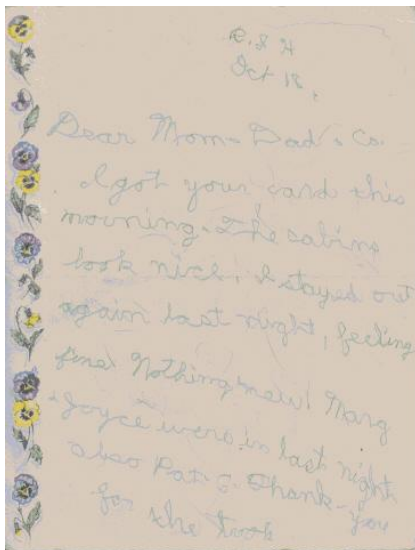 Oct 18
Dear Mom - Dad & Co.
I got your card this
morning. The
look nice. I stayed out
again last night, feeling
fine. Nothing new! Marg
Joyce were in last night
also Pat S. Thank-you
for the